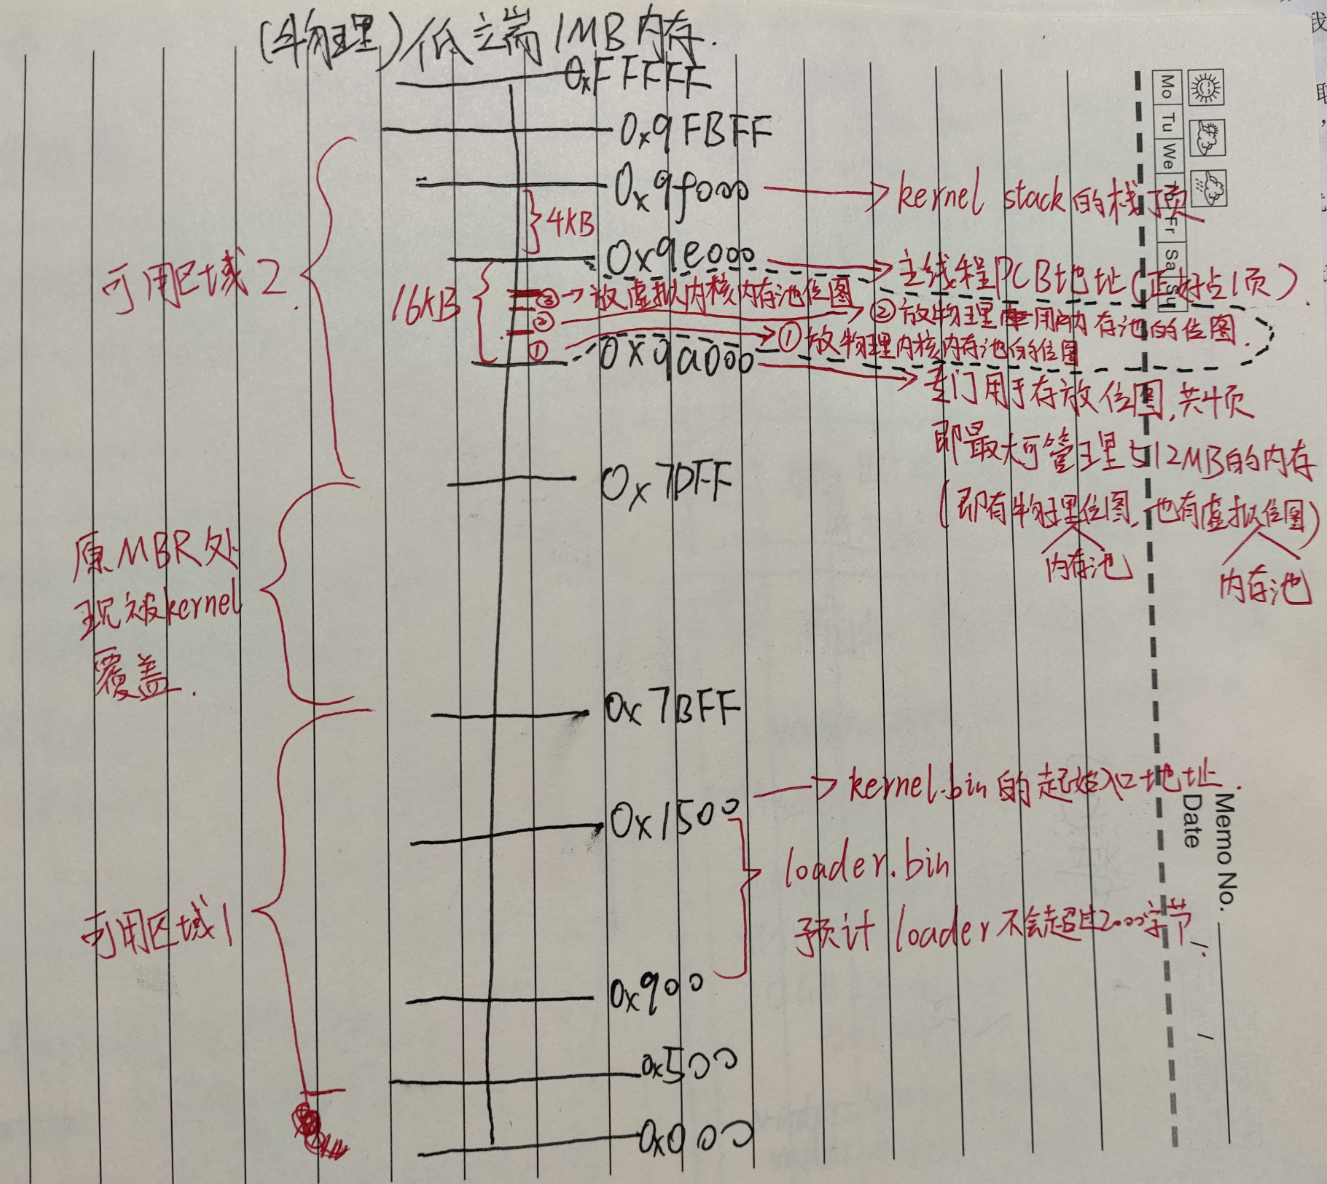 (物理)低端1MB内存.
0xFFFFF
0x9FBFF
0x9f000 → kernel stack的栈顶
}4KB
0x9e000 → 主线程PCB地址(正好占1页).
可用区域2
16KB
③→放虚拟内核内存池位图
② ②放物理用户内存池的位图.
① ①放物理内核内存池的位图
0x9a000 → 专门用于存放位图,共4页
即最大可管理512MB的内存
(即有物理位图,也有虚拟位图)
内存池
内存池
0x7DFF
原MBR处
现被kernel
覆盖.
0x7BFF
0x1500 → kernel.bin的起始入口地址.
loader.bin
预计loader不会超过2000字节.
可用区域1
0x900
0x500
0x000
Mo
Tu
We
Fr
Sa
Su
Memo No.
Date
/ /
我
取